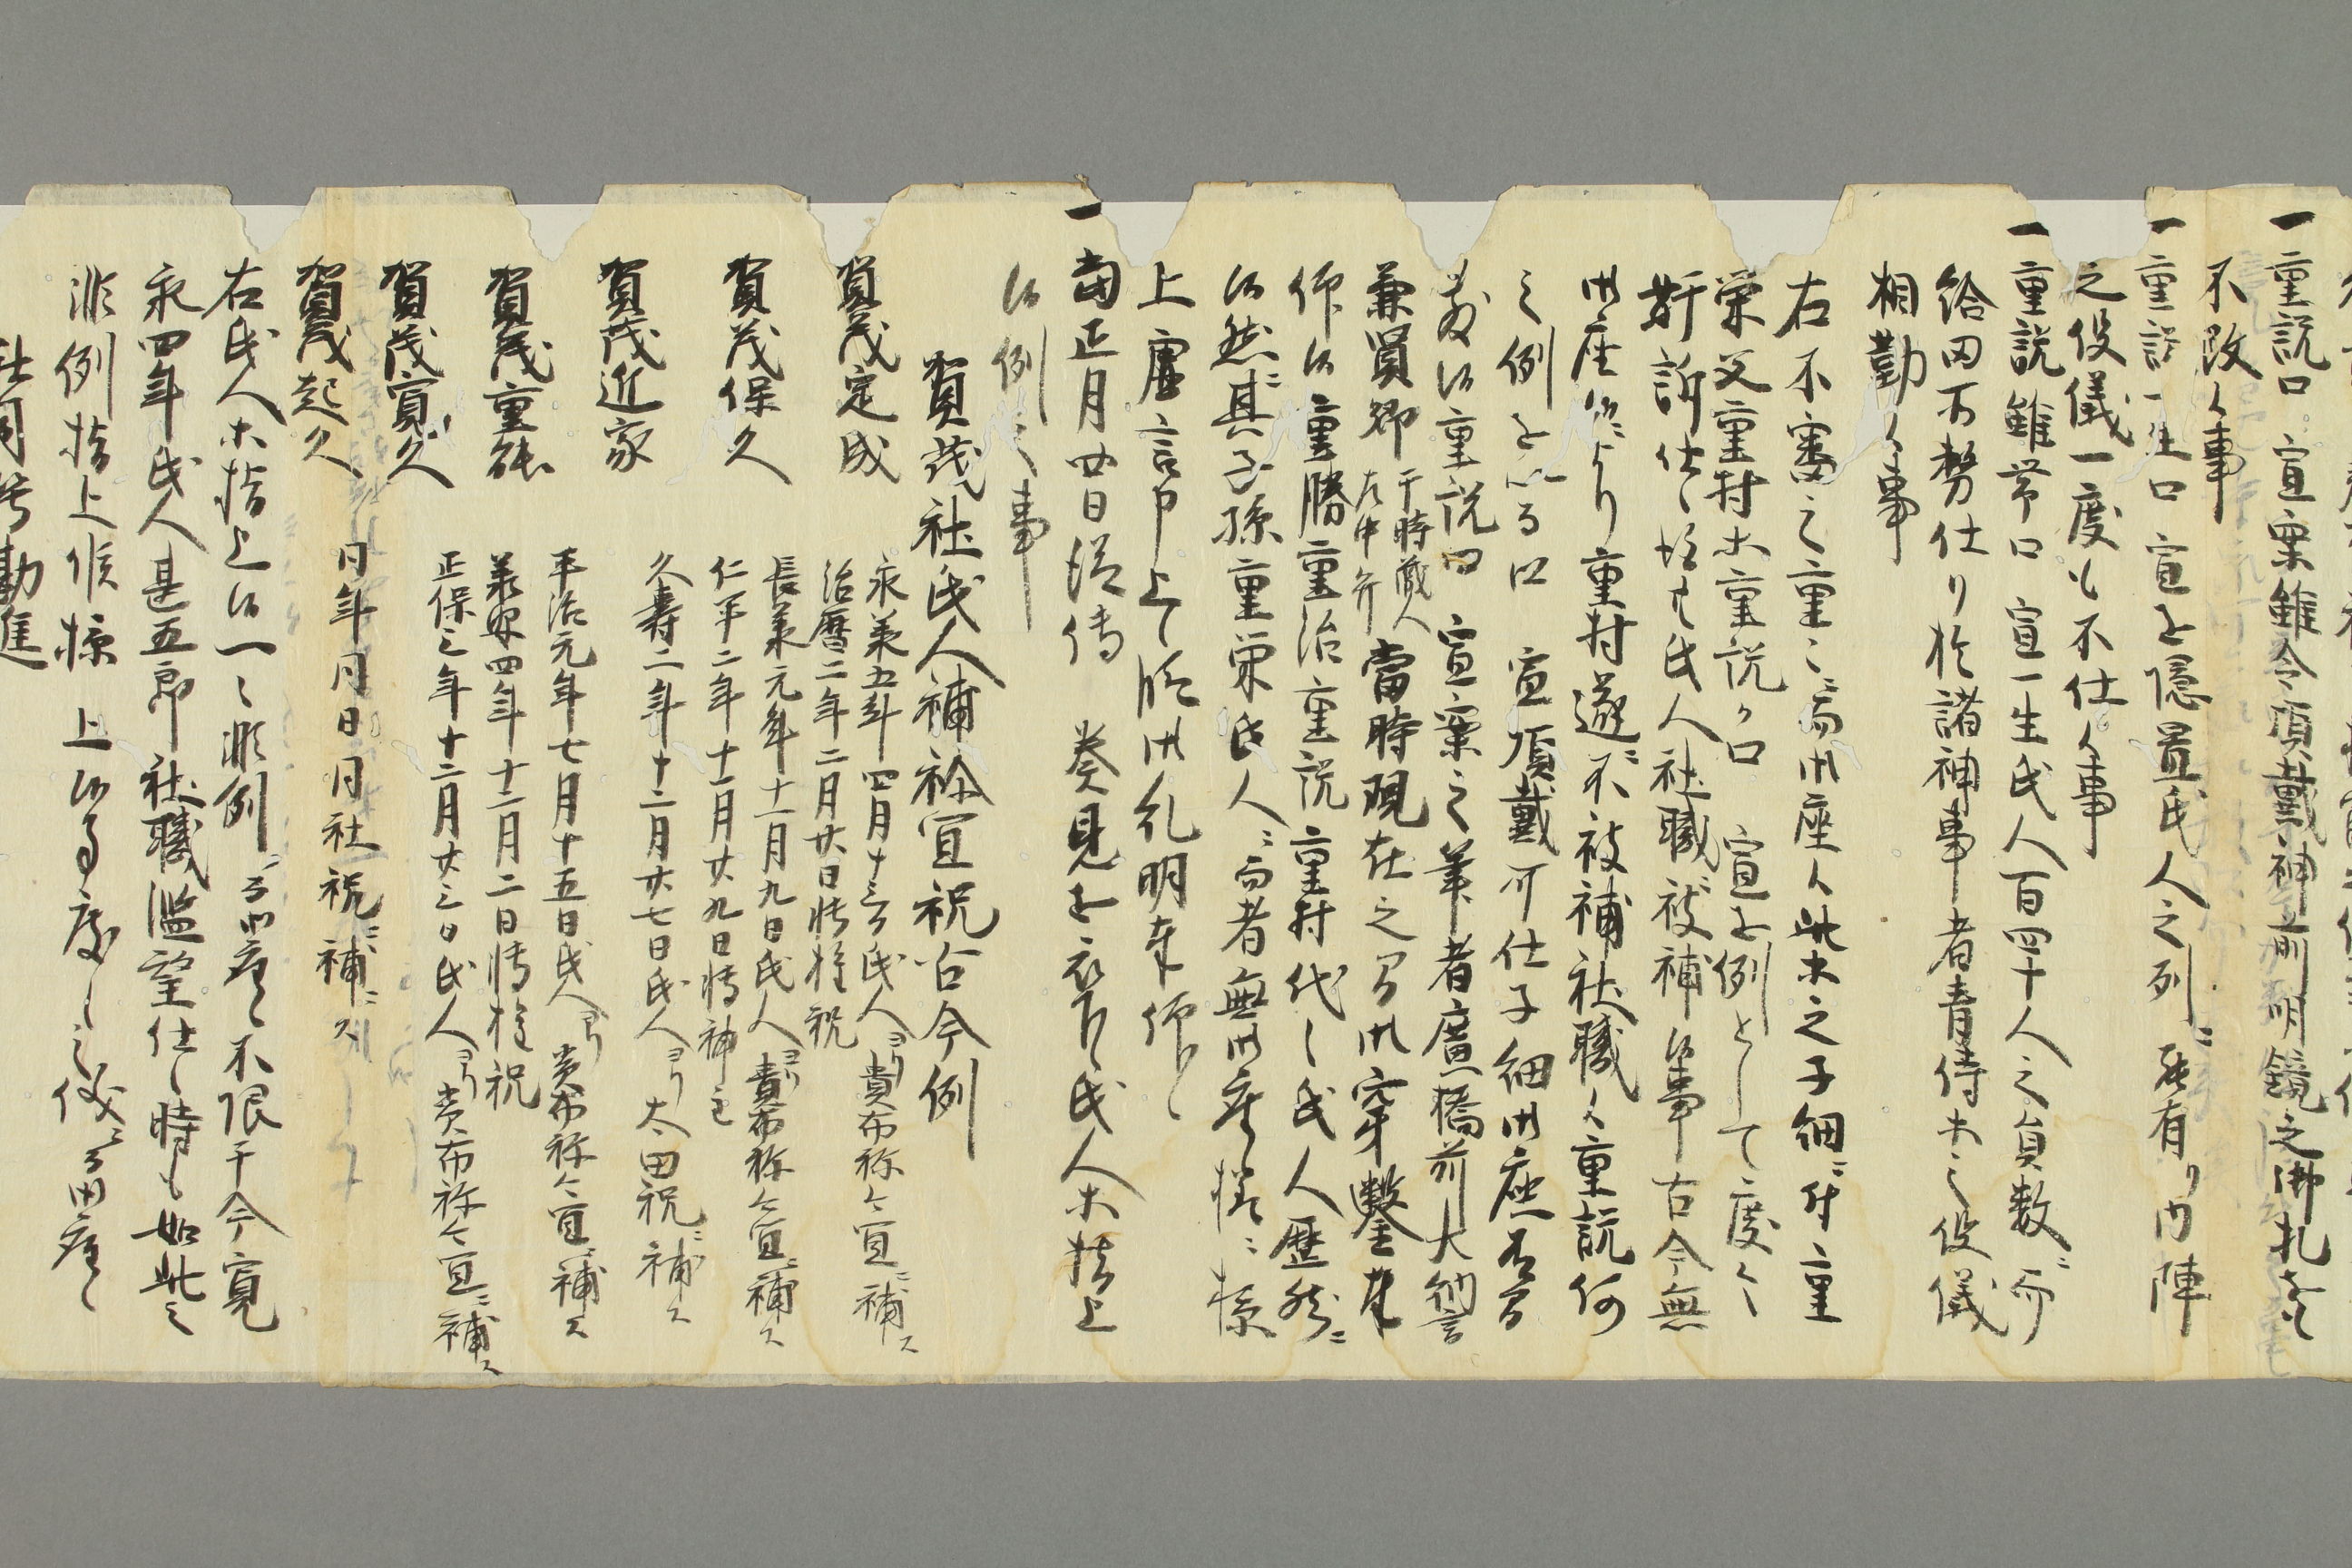 一重説口 宣案雖令頂戴神前明鏡之御札
不改候事
一重説一生口 宣を隠置氏人之列ニ 有り内陣
之役儀一度も不仕候事
一重説雖帯口 宣一生氏人百四十人之員数ニ而
給田相勤仕り於諸神事者青侍ホ之役儀
相勤候事
右不審之重々ニ而御座候此ホ之子細ニ付重
栄父重村ホ重説ノ口 宣を例として度々
訴訟仕候 氏人社職ニ被補候事古今無
御座候ニより重村遂ニ不被補社職候重説何
之例と 口 宣頂戴可仕子細御座
候重説口 宣案之筆者廣橋前大納言
兼賢卿 于時蔵人左中弁 當時現在之間御穿鑿
仰候重勝重治重説重村代々氏人歴然ニ
候然ニ其子孫重栄氏人ニ而者無御座様ニ掠
上虚言申上候段御糺明奉仰候
一当正月廿日 傳 奏見を 氏人ホ指上
候例之事
賀茂社氏人補祢宜祝古今例
賀茂定成 永承五年四月十三日氏人ヨリ貴布祢々宜ニ補ス
治暦二年二月廿日転権祝
賀茂保久 長承元年十一月九日氏人ヨリ貴布祢々宜ニ補ス
仁平二年十一月廿九日転神主
賀茂近家 久寿二年十二月廿七日氏人ヨリ太田祝ニ補ス
賀茂重 平治元年七月十五日氏人ヨリ貴布祢々宜ニ補ス
承安四年十二月二日転権祝
賀茂寛久 正保三年十二月廿三日氏人ヨリ貴布祢々宜ニ補ス
賀茂起久 同年同月同日社祝ニ補ス
右氏人ホ指上候一々非例ニ而御座候不限于今寛
永四年氏人甚五郎社職濫望仕候時も如此之
非例指上候掠 上候 儀ニ而御座候
社司 勘進